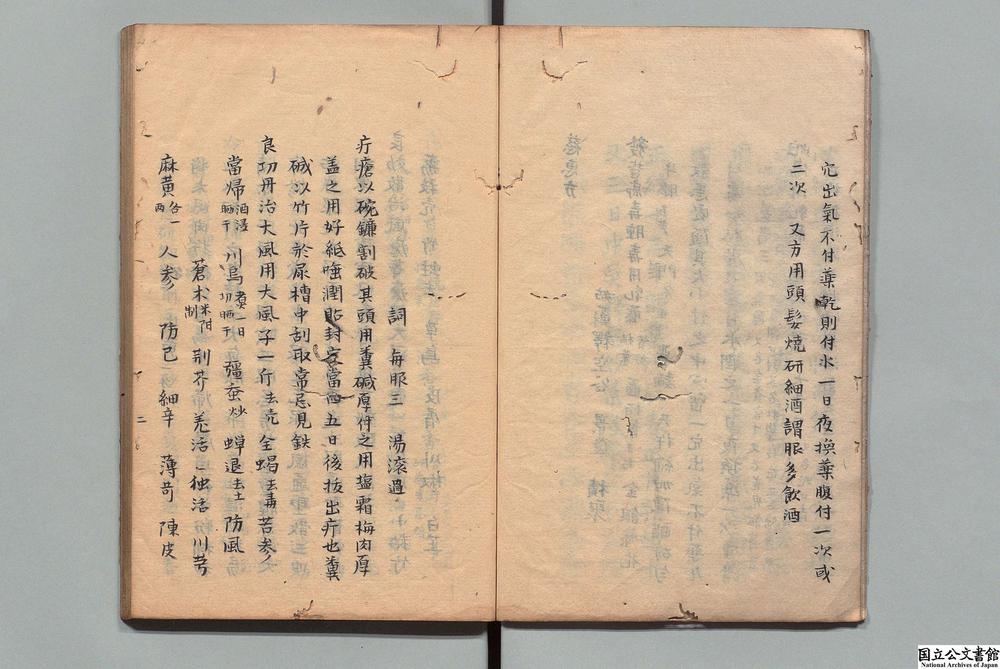 穴出氣不付藥乾則付水一日夜換藥腹付一次或
二次　又方用頭髮燒研細酒調服多飲酒
詞　每服三　湯滾過
疔瘡以碗鐮割破其頭用糞碱厚付之用塩霜梅肉厚
盖之用好紙唾潤貼封當四五日後拔出疔也糞
碱以竹片於尿槽中刮取當忌見鉄
良切丹治大風用大風子一斤去壳全蝎去毒苦參
當帰酒浸晒干川烏煮一日切晒干殭蚕炒蟬退去土防風
蒼朮米泔制荆芥羌活独活川芎
麻黄各一两　人参　防己　細辛　薄苛　陳皮
二
国立公文書館
National Archives of Japan